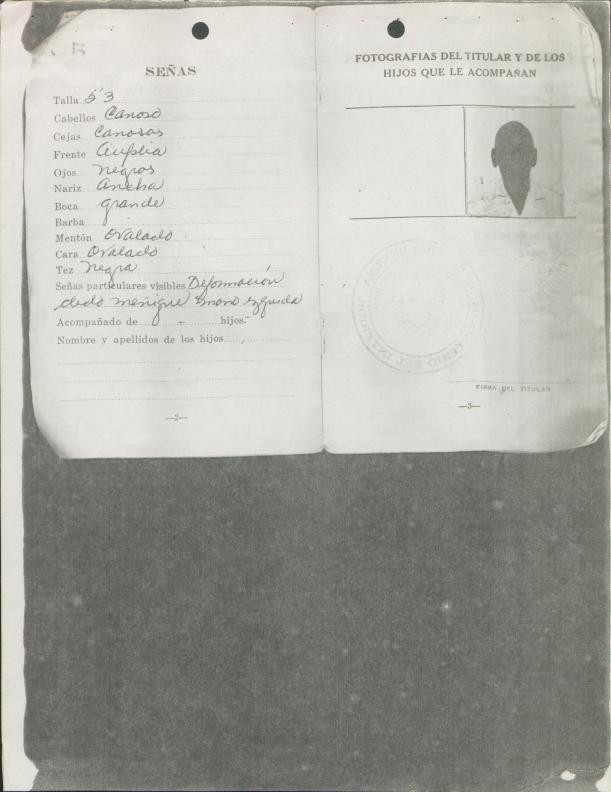 SEÑAS
Talla 5'3
Cabellos Canoso
Cejas Canosas
Frente Amplia
Ojos negros
Nariz Ancha
Boca grande
Barba
Mentón Ovalado
Cara Ovalado
Tez Negra
Señas particulares visibles Deformación
dedo meñique mano izquieda
Acompañado de - hijos.
Nombre y apellidos de los hijos
—2—
FOTOGRAFIAS DEL TITULAR Y DE LOS
HIJOS QUE LE ACOMPAÑAN
FIRMA DEL TITULAR
—3—